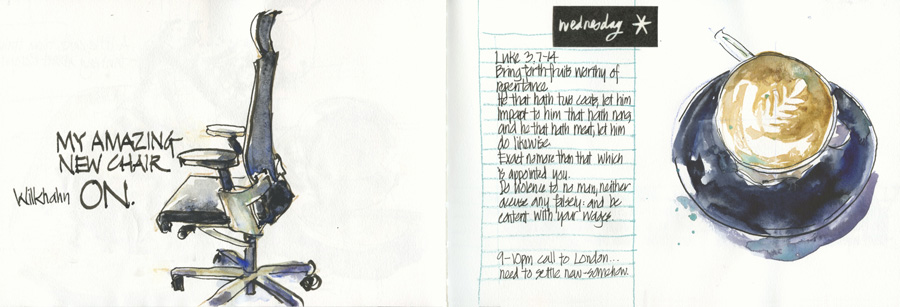 MY AMAZING
NEW CHAIR
Wilkhahn ON.
wednesday *
Luke 3, 7-14
Bring forth fruits worthy of
repentance.
He that hath two coats, let him
impart to him that hath none
and he that hath meat, let him
do likewise.
Exact no more than that which
is appointed you.
Do violence to no man, neither
accuse any falsely: and be
content with your wages.
9-10pm call to London...
need to settle new-somehow.